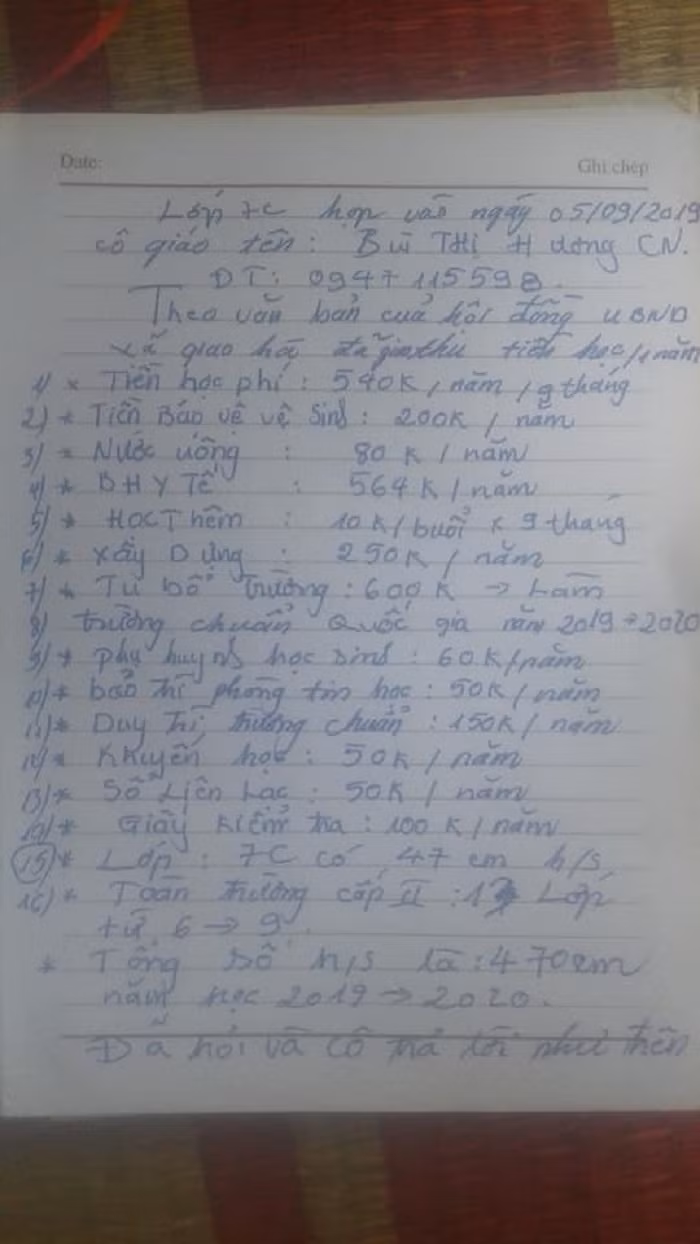 Date: Ghi chép
Lớp 7C họp vào ngày 05/09/2019
cô giáo tên: Bùi THị Hương CN.
ĐT: 0947115598.
Theo văn bản của hội đồng UBND
xã giao hà đã thu tiền học/1 năm
1) * Tiền học phí: 540K/năm/9 tháng
2) * Tiền Bảo vệ vệ sinh: 200K / năm
3) * Nước uống : 80K / năm
4) * BHY Tế : 564K / năm
5) * HọcThêm : 10K/buổi x 9 tháng
6) * xây Dựng : 250K / năm
7) * Tu bổ Trường: 600K → Làm
8) trường chuẩn Quốc gia năm 2019→2020
9) * phụ huynh học sinh: 60K/năm
10) * bảo trì phòng tin học: 50K / năm
11) * Duy Trì, trường chuẩn: 150K / năm
12) * Khuyến học: 50K / năm
13) * Sổ Liên Lạc: 50K / năm
14) * Giấy Kiểm tra: 100K / năm
15) * Lớp: 7C có 47 em h/s,
16) * Toàn trường cấp II: Lớp
từ 6 → 9.
* Tổng số h/s là: 470em
năm học 2019 → 2020.
Đã hỏi và cô trả lời như trên